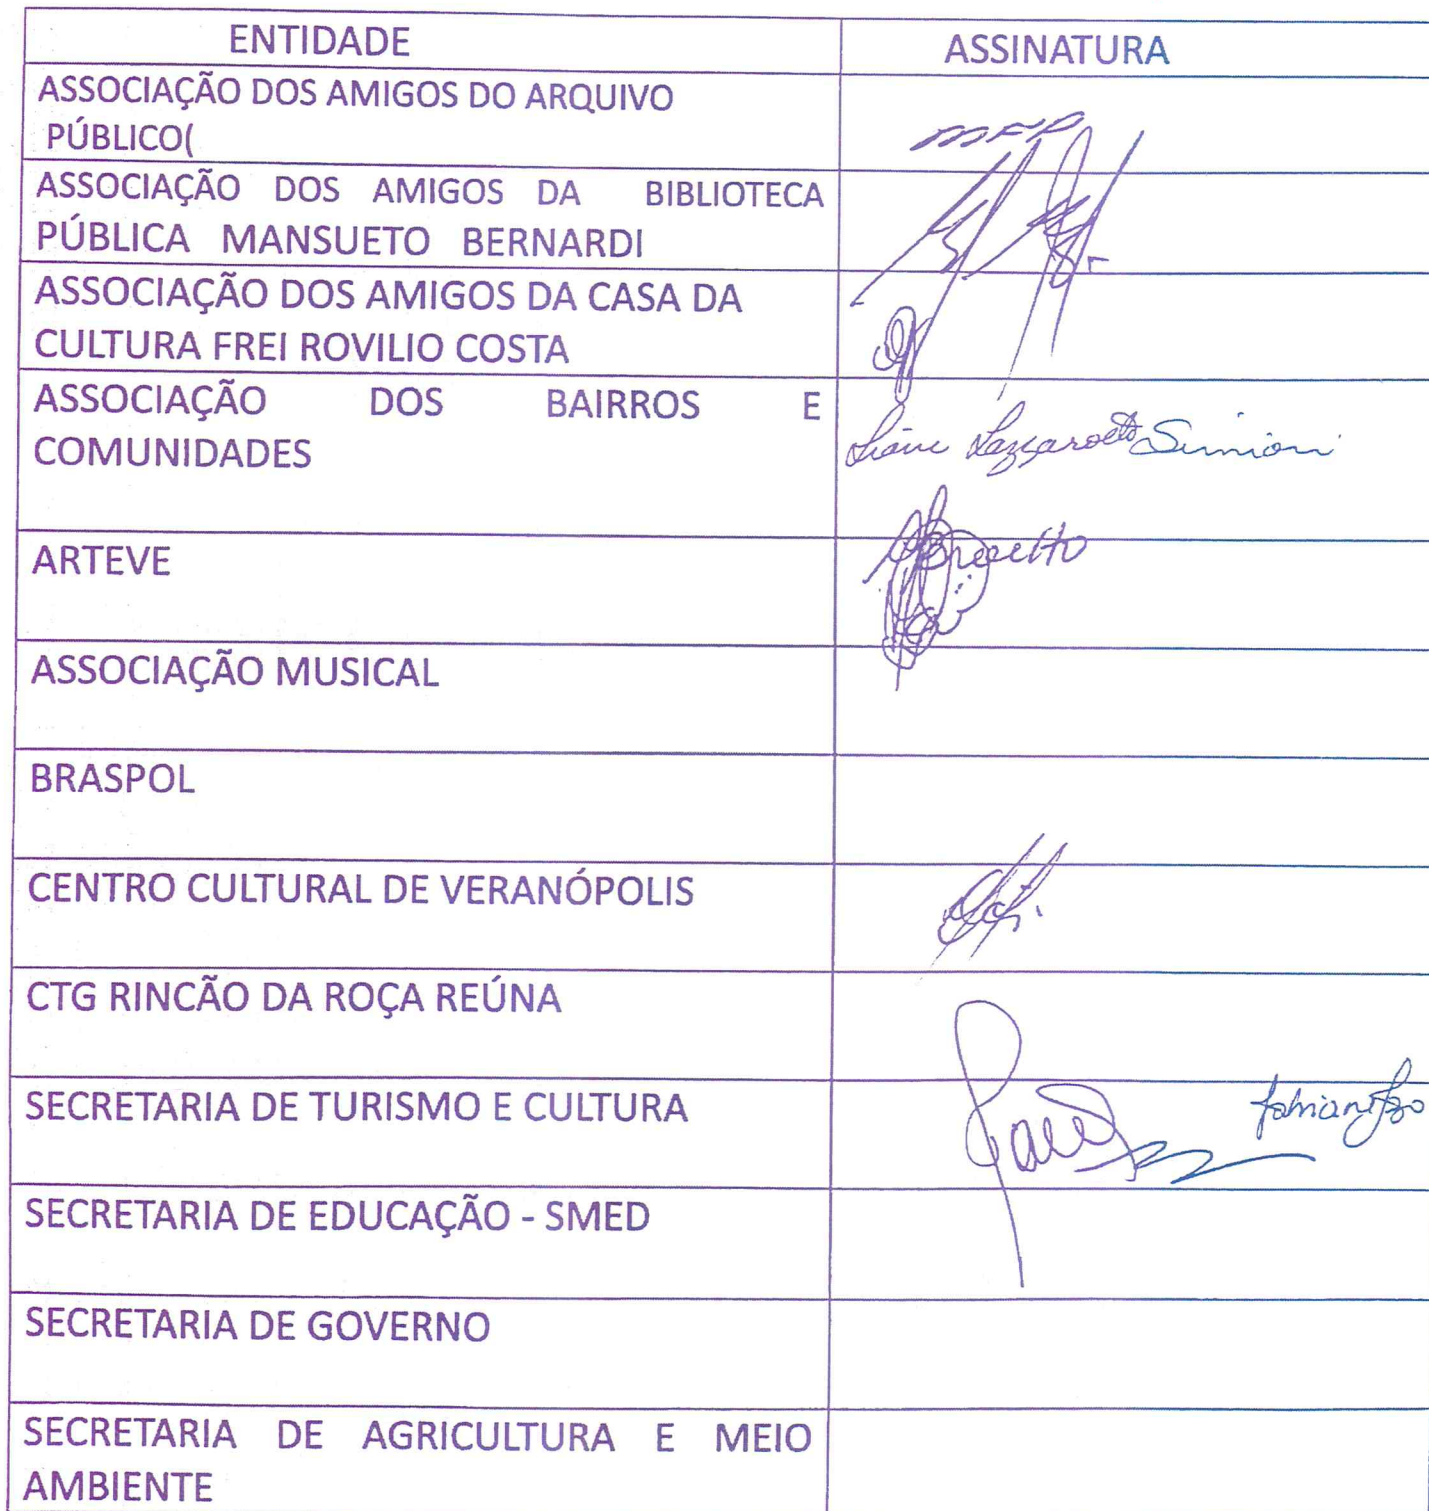 ENTIDADE ASSINATURA
ASSOCIAÇÃO DOS AMIGOS DO ARQUIVO
PÚBLICO(
ASSOCIAÇÃO DOS AMIGOS DA BIBLIOTECA
PÚBLICA MANSUETO BERNARDI
ASSOCIAÇÃO DOS AMIGOS DA CASA DA
CULTURA FREI ROVILIO COSTA
ASSOCIAÇÃO DOS BAIRROS E
COMUNIDADES
Simioni
ARTEVE
ASSOCIAÇÃO MUSICAL
BRASPOL
CENTRO CULTURAL DE VERANÓPOLIS
CTG RINCÃO DA ROÇA REÚNA
SECRETARIA DE TURISMO E CULTURA
SECRETARIA DE EDUCAÇÃO - SMED
SECRETARIA DE GOVERNO
SECRETARIA DE AGRICULTURA E MEIO
AMBIENTE